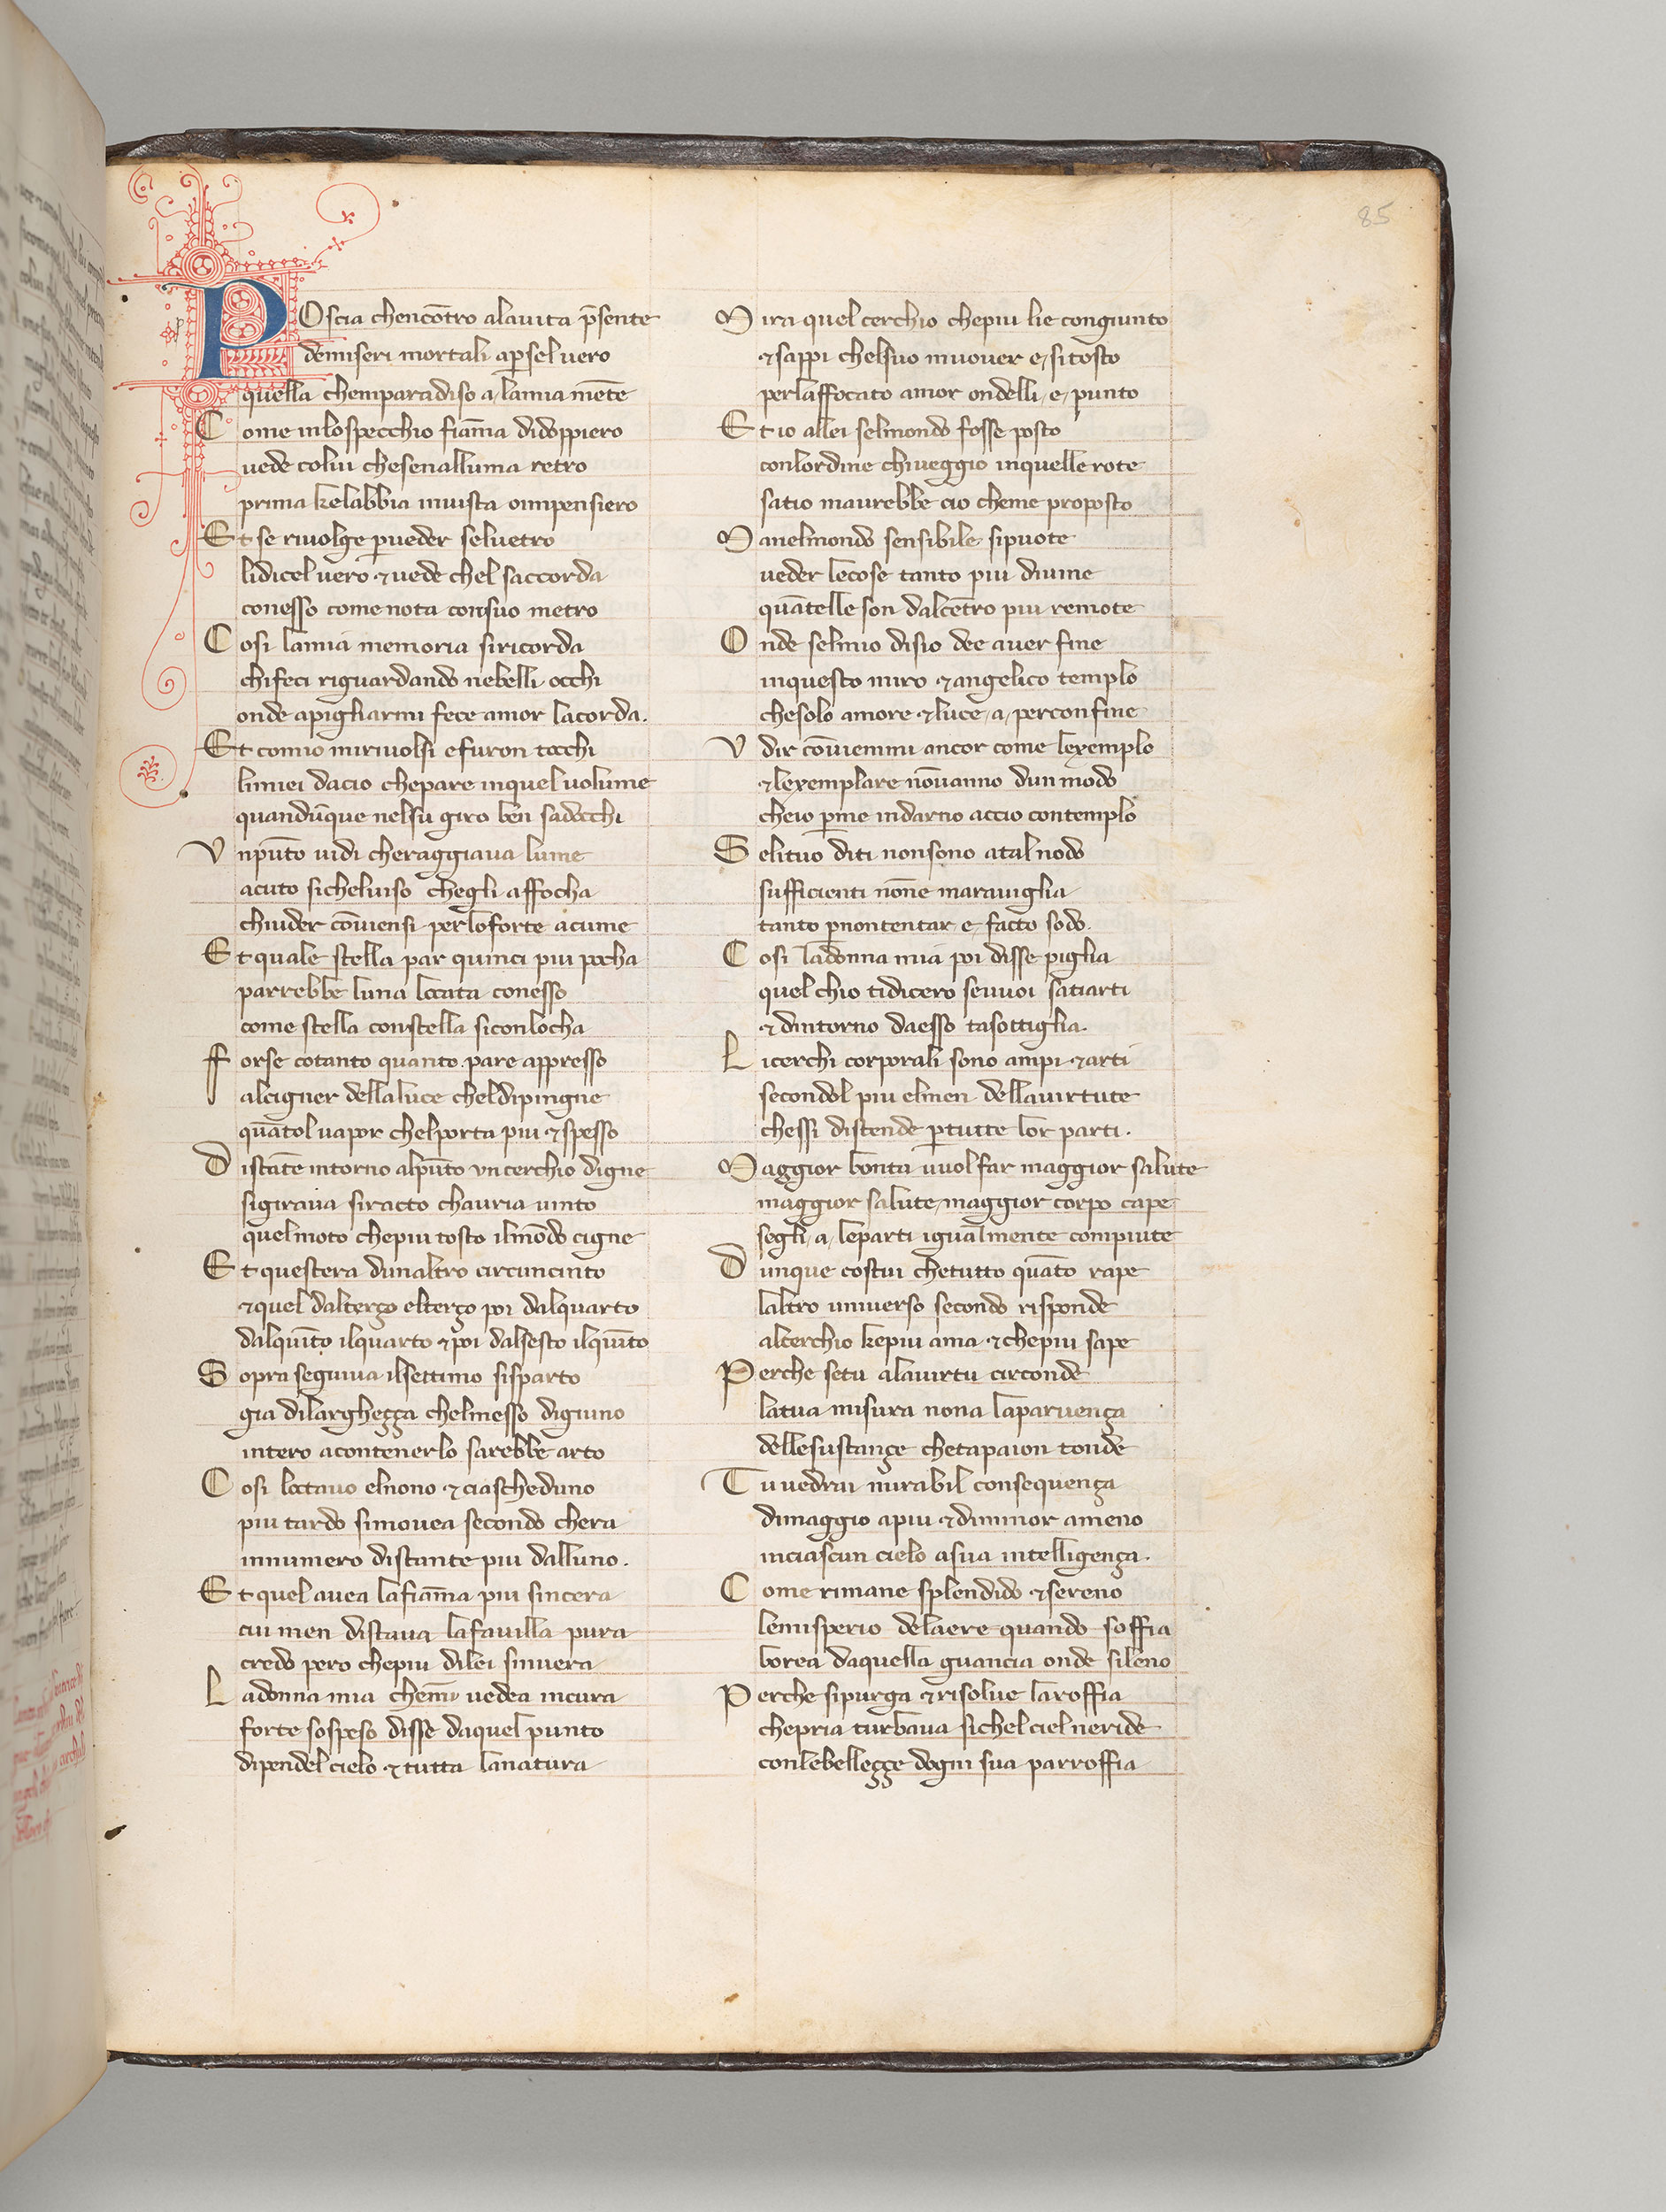 85
POscia chencōtro alauita p̄sente
demiseri mortali apsel uero
quella chemparadisoa lamia mēte
Come inlospecchio fiam̄a didoppiero
uede colui chesenalluma retro
prima kelabbia inuista oinpensiero
Et se riuolge pueder seluetro
lidicel uero ⁊uede chel saccorda
conesso come nota consuo metro
Cosi lamia memoria siricorda
chifeci riguardando nebelli occhi
onde apigliarmi fece amor lacorda.
Et comio miriuolsi efuron tocchi
limiei dacio chepare inquel uolume
quandūque nelsu giro ben sadocchi
Vnpūto uidi cheraggiaua lume
acuto sicheluiso chegli affocha
chiuder cōuiensi perloforte acume
Et quale stella par quinci piu pocha
parrebbe luna locata conesso
come stella constella siconlocha
fforse cotanto quanto pare appresso
alcigner dellaluce cheldipingne
quātol uapor chelporta piu ⁊spesso
Distāte intorno alpūto vn cerchio digne
sigiraua siracto chauria uinto
quelmoto chepiu tosto ilmōdo cigne
Et questera dunaltro circuncinto
⁊quel dalterço elterço poi dalquarto
dalquīto ilquarto ⁊poi dalsesto ilquīto
Sopra seguiua ilsettimo sisparto
gia dilarghegga chelmesso digiuno
intero acontenerlo sarebbe arto
Cosi loctauo elnono ⁊ciascheduno
piu tardo simouea secondo chera
innumero distante piu dalluno.
Et quel auea lafiam̄a piu sincera
cui men distaua lafauilla pura
credo pero chepiu dilei sinuera
Ladonna mia chemi uedea incura
forte sospeso disse daquel punto
dipendel cielo ⁊tutta lanatura
Mira quel cerchio chepiu lie congiunto
⁊sappi chelsuo muouer e, si tosto
perlaffocato amor ondelli, e, punto
Et io allei selmondo fosse posto
conlordine chiueggio inquelle rote
satio maurebbe cio cheme proposto
Manelmondo sensibile sipuote
ueder lecose tanto piu diuine
quātelle son dalcētro piu remote
Onde selmio disio dee auer fine
inquesto miro ⁊angelico templo
chesolo amore ⁊luce, a, perconfine
Vdir cōuiemmi ancor come lexemplo
⁊lexemplare nōuanno dun modo
cheio pme indarno accio contemplo
Selituo diti nonsono atal nodo
sufficienti nōne marauiglia
tanto pnontentar, e, facto sodo.
Cosi ladonna mia poi disse piglia
quel chio tidicero seuuoi satiarti
⁊dintorno daesso tasottiglia.
Licerchi corporali sono ampi ⁊arti
secondol piu elmen dellauirtute
chessi distende ptutte lor parti.
Maggior bonta uuol far maggior salute
maggior salute, maggior corpo cape
segli, a, leparti igualmente compiute
Dunque costui chetutto quāto rape
laltro uniuerso secondo risponde
alcerchio kepiu ama ⁊chepiu sape
Perche setu alauirtu circonde
latua misura nona laparuença
dellesustançe chetapaion tonde
Tu uedrai mirabil consequença
dimaggio apiu ⁊diminor ameno
inciascun cielo asua intelligença.
Come rimane splendido ⁊sereno
lemisperio delaere quando soffia
borea daquella guancia onde sileno
Perche sipurga ⁊risolue laroffia
chepria turbaua sichel ciel neride
conlebellegge dogni sua parroffia